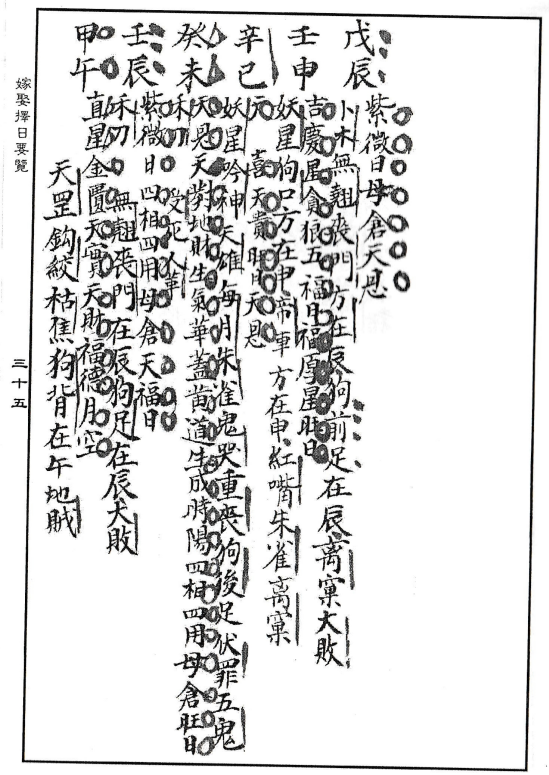 戊辰 紫微日母倉天恩
卜木無翹喪門方在辰狗前足在辰离窠大敗
壬申 吉慶星貪狼五福月福厚星旺日
妖星狗口方在申帝車方在申紅嘴朱雀离窠
辛巳 喜天貴旺日天恩
妖星吟神天雄每月朱雀鬼哭重喪狗後足伏罪五鬼
癸未 天恩天對地財生氣華蓋黃道生成時陽四相四用母倉旺日
禾刀 受死人革
壬辰 紫微日四相四用母倉天福日
禾刀 無翹喪門在辰狗足在辰大敗
甲午 直星金匱天寶天財福德月空
天罡鈎絞枯焦狗背在午地賊
嫁娶擇日要覽
三十五